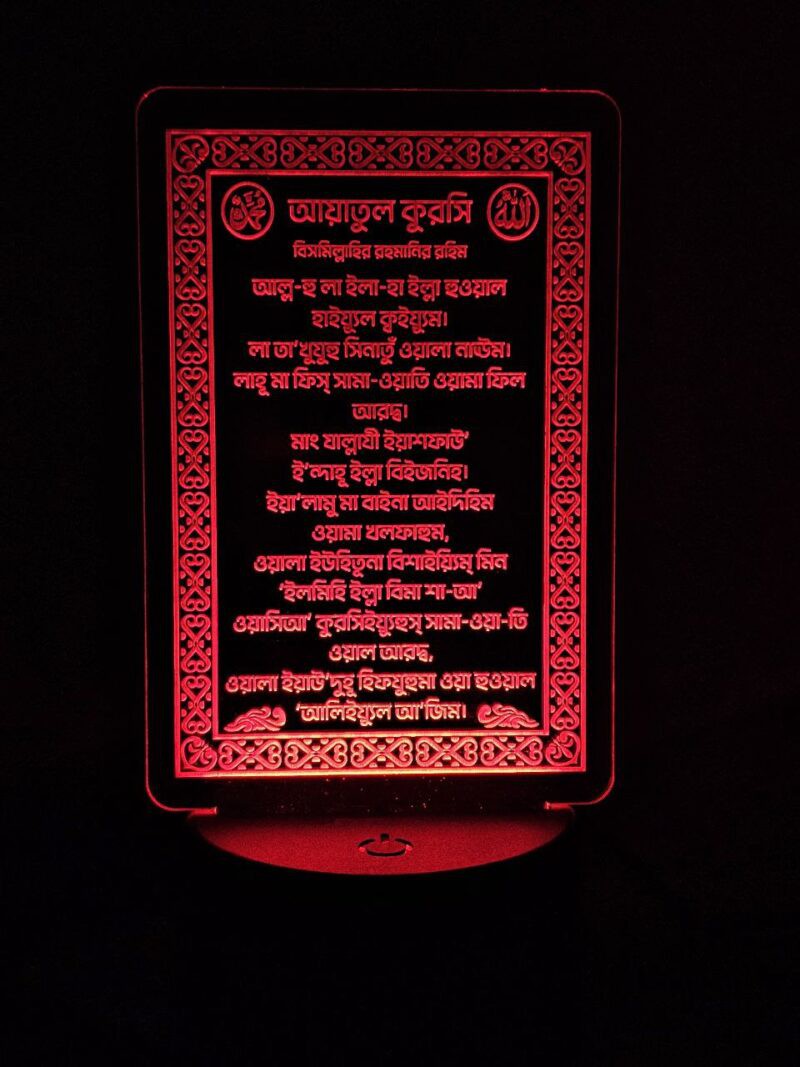 محمد আয়াতুল কুরসি الله
বিসমিল্লাহির রহমানির রহিম
আল্ল-হু লা ইলা-হা ইল্লা হুওয়াল
হাইয়্যুল ক্বইয়্যুম।
লা তা’খুযুহু সিনাতুঁ ওয়ালা নাঊম।
লাহূ মা ফিস্ সামা-ওয়াতি ওয়ামা ফিল
আরদ্ব।
মাং যাল্লাযী ইয়াশফাউ’
ই’ন্দাহূ ইল্লা বিইজনিহ।
ইয়া’লামু মা বাইনা আইদিহিম
ওয়ামা খলফাহুম,
ওয়ালা ইউহিতূনা বিশাইয়্যিম্ মিন
‘ইলমিহি ইল্লা বিমা শা-আ’
ওয়াসিআ’ কুরসিইয়্যুহুস্ সামা-ওয়া-তি
ওয়াল আরদ্ব,
ওয়ালা ইয়াউ’দুহূ হিফযুহুমা ওয়া হুওয়াল
‘আলিইয়্যুল আ’জিম।